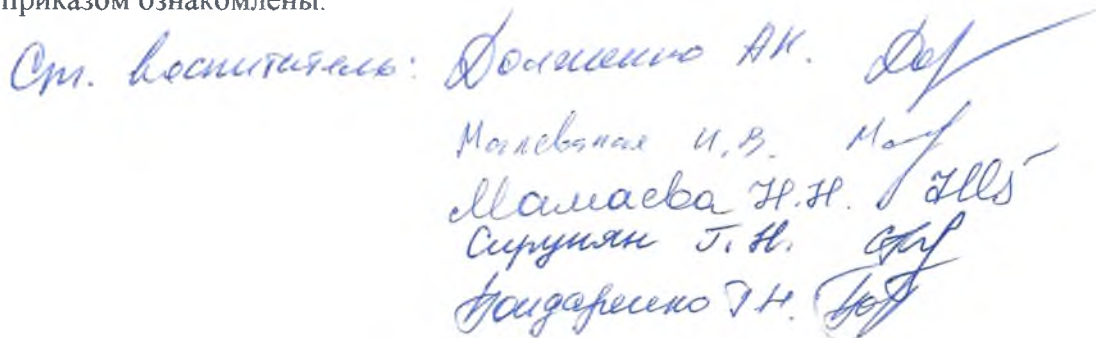 приказом ознакомлены:
Ст. воспитатель: Долженко А.К.
Малеваная И.В.
Мамаева Н.Н.
Сирунян Т.Н.
Бондаренко Г.Н.